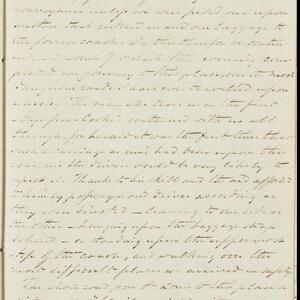 one upon
another that ended in and our baggage to
the former coach. In this therefore we contin
ued, about 7 o'clock this evening com
pleted our journey to this place, upon the most
dangerous roads I have ever travelled upon
The man who drove us on the first
stage from continued with us all
through, for he said it was the first time that
such a carriage as ours had been upon this
road, and the driver would be very likely to
upset us. Thanks to his skill and the aid afforded
to him by passengers and drivers according as
they were directed — leaning to one side or
the other — hanging upon the baggage strap
behind — or standing upon the uppermost
step of the coach, and walking over the
most difficult places we arrived in safety.
The whole road from St Louis to this place a